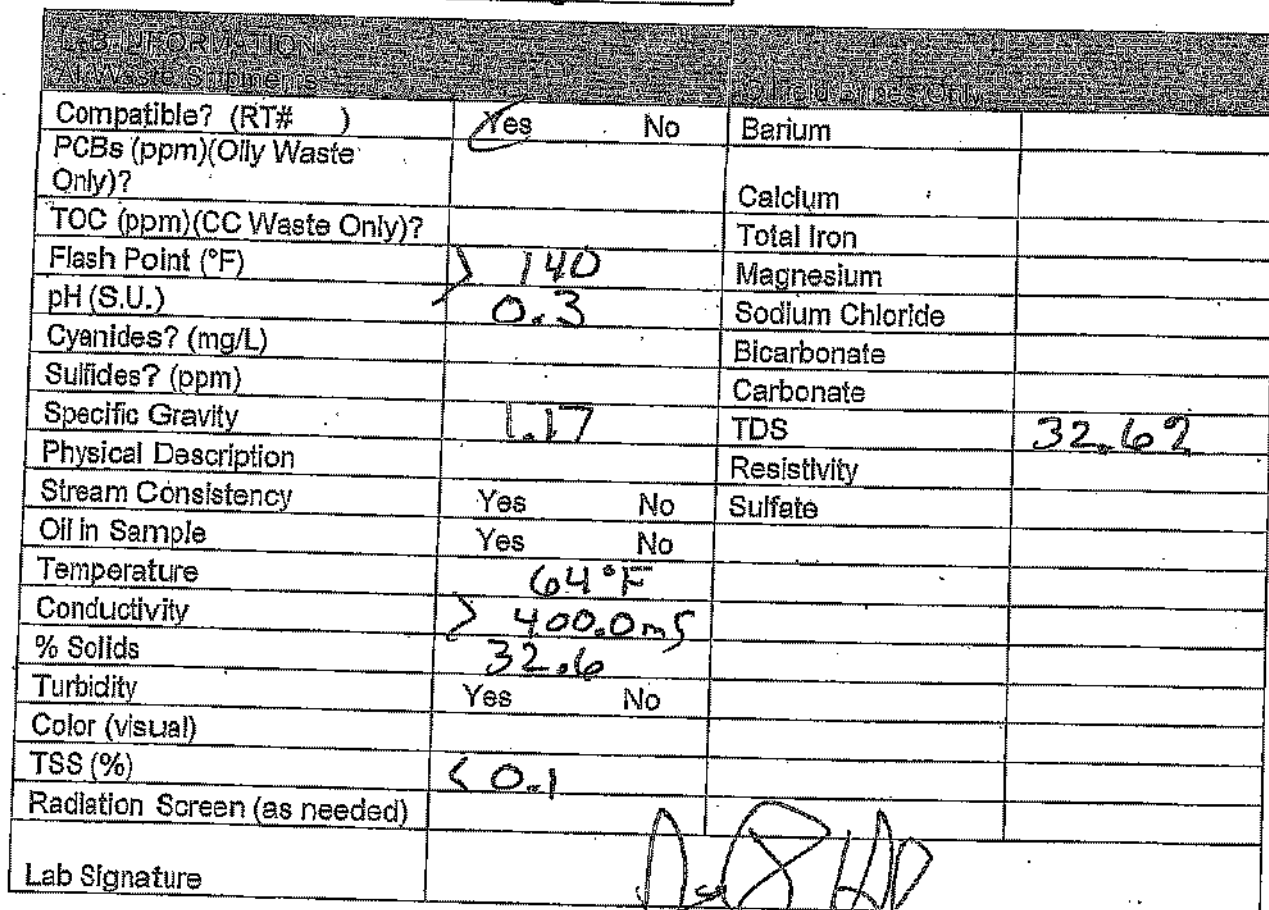 LAB INFORMATION
All Waste Shipments Oilfield Brines Only
Compatible? (RT# ) Yes No Barium
PCBs (ppm)(Oily Waste
Only)? Calcium
TOC (ppm)(CC Waste Only)? Total Iron
Flash Point (°F) > 140 Magnesium
pH (S.U.) 0.3 Sodium Chloride
Cyanides? (mg/L) Bicarbonate
Sulfides? (ppm) Carbonate
Specific Gravity 1.17 TDS 32.62
Physical Description Resistivity
Stream Consistency Yes No Sulfate
Oil in Sample Yes No
Temperature 64°F
Conductivity > 400.0mS
% Solids 32.6
Turbidity Yes No
Color (visual)
TSS (%) < 0.1
Radiation Screen (as needed)
Lab Signature